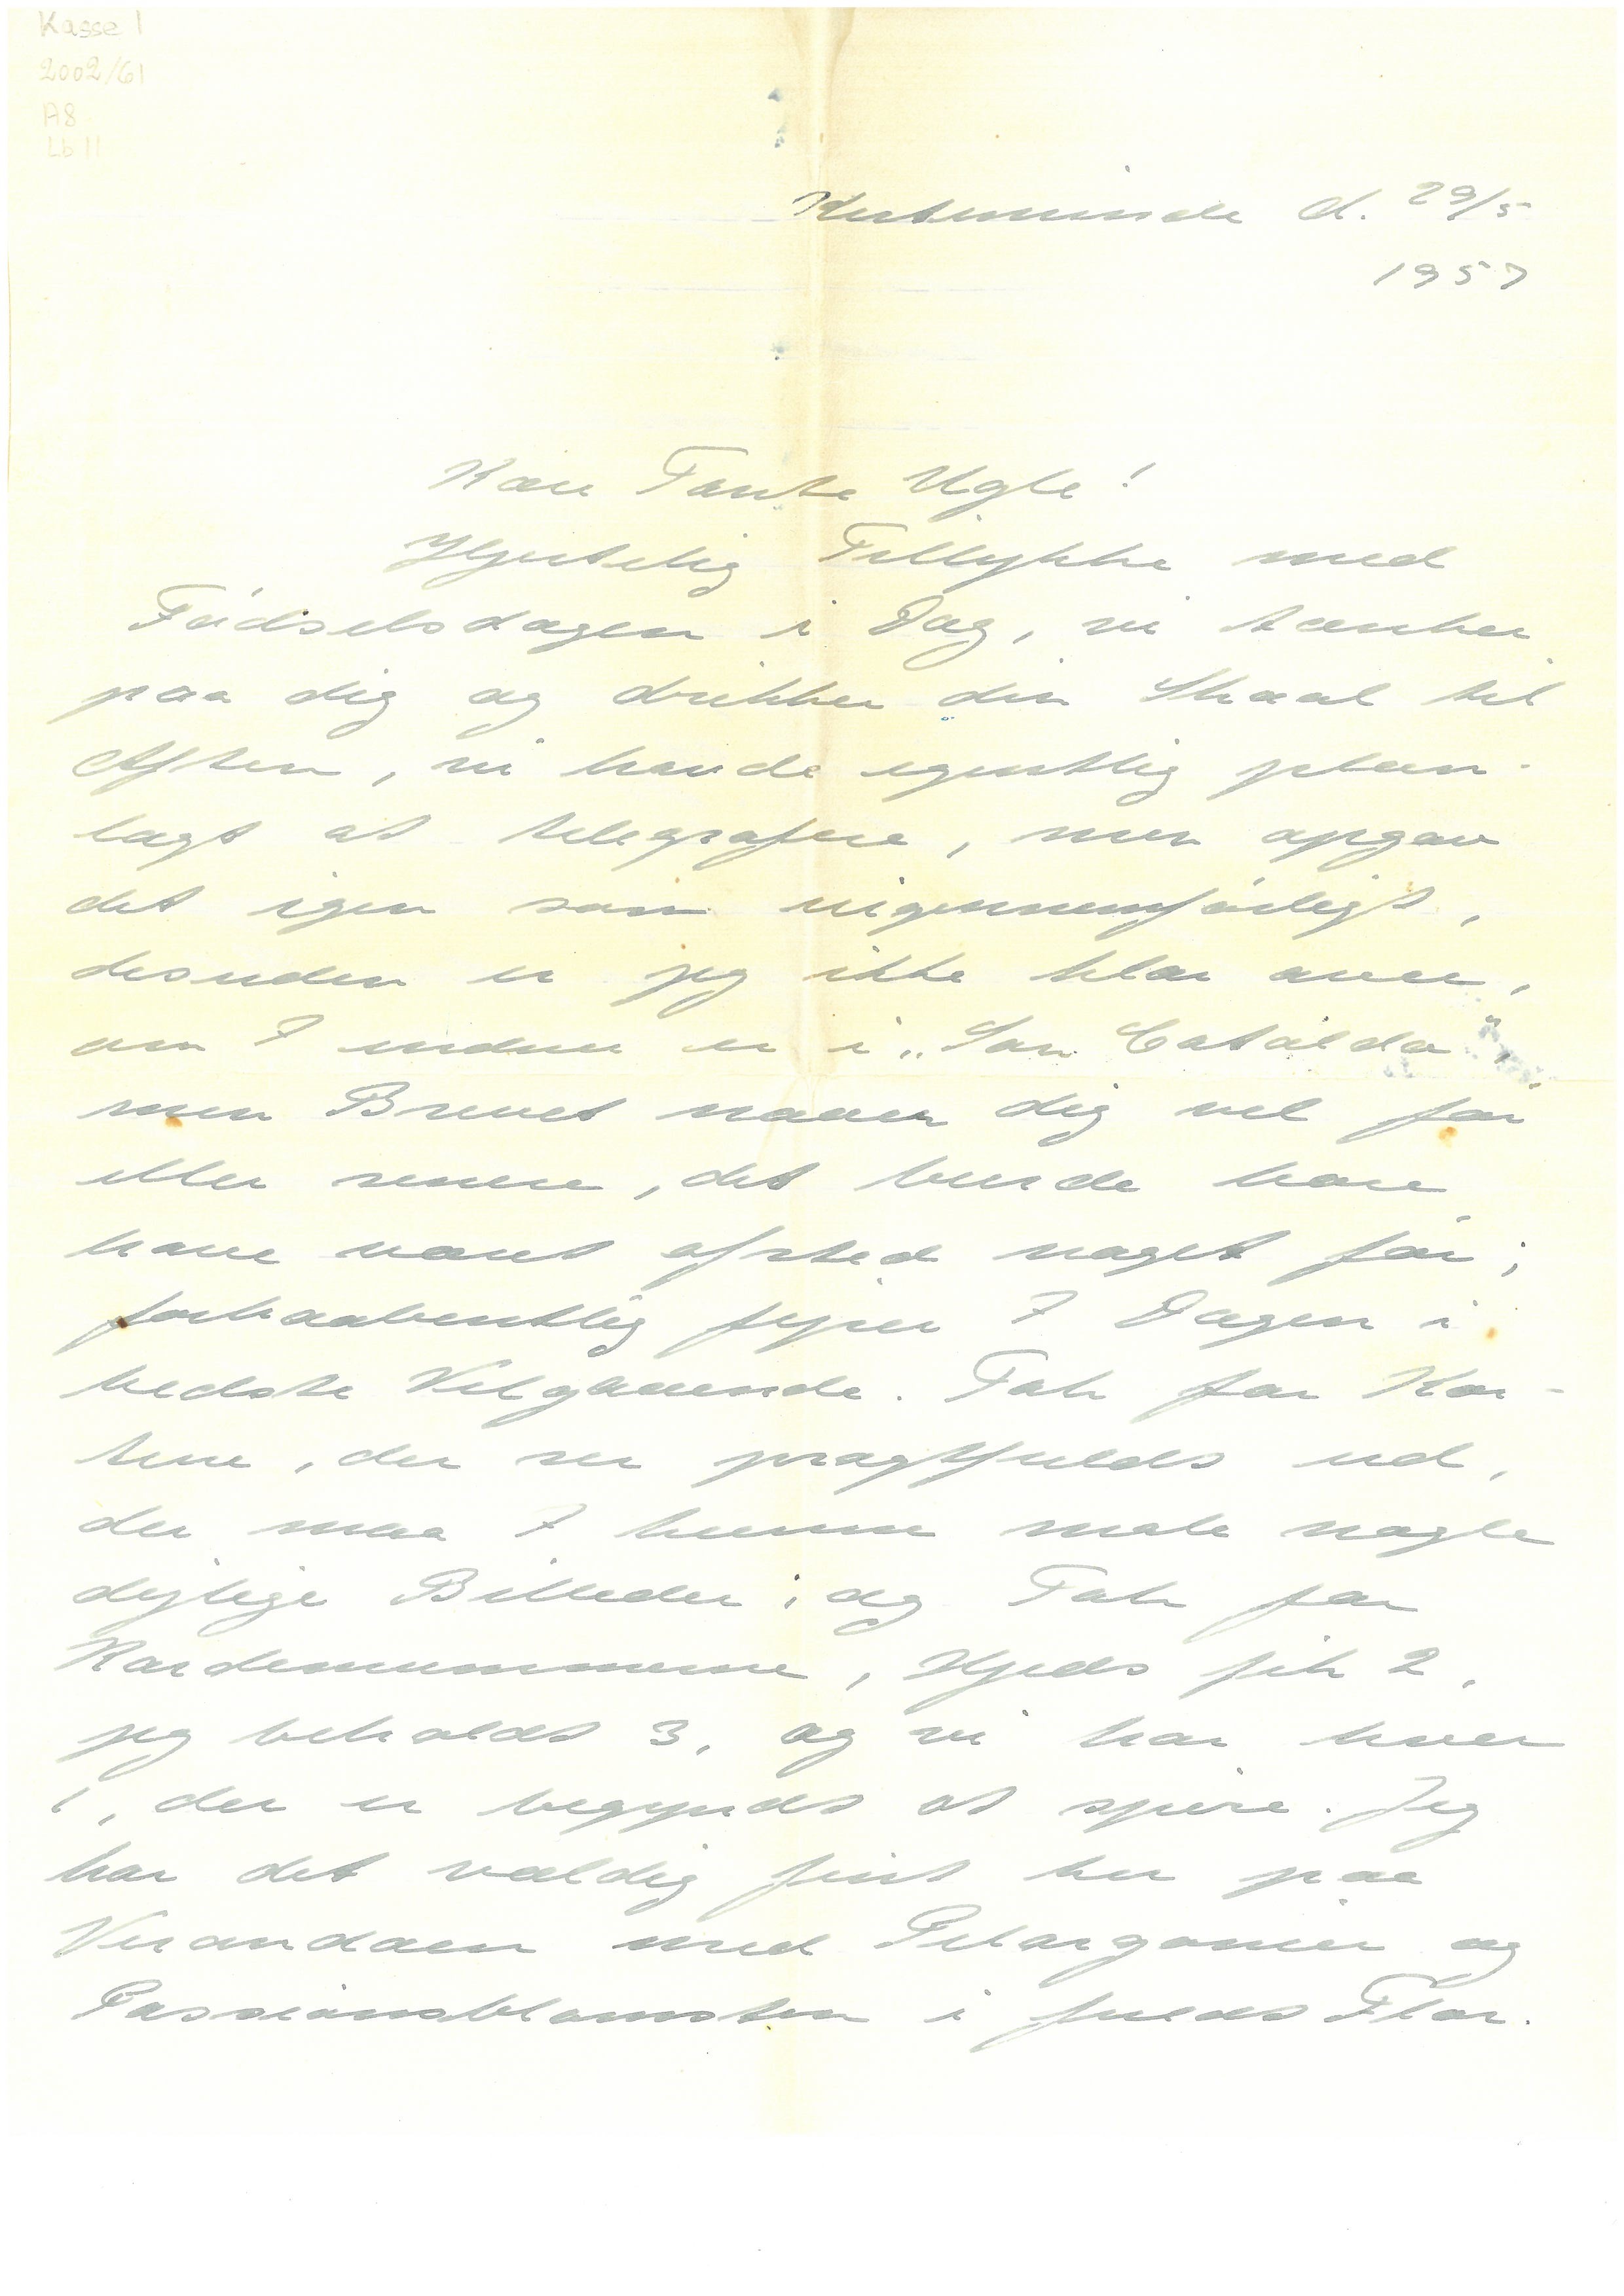 Kasse 1
2002/61
A8
Lb 11
Kerteminde d. 29/5
1957
Kære Tante Ugle!
Hjertelig Tillykke med
Fødselsdagen i Dag, vi tænker
paa dig og drikker din Skaal til
Aften, vi havde egentlig plan-
lagt at telegrafere, men opgav
det igen som uigennemførligt,
desuden er jeg ikke klar over,
om I endnu er i "San Cataldo",
men Brevet naaer dig vel før
eller senere, det burde have
have været afsted noget før;
forhaabentlig fejrer I Dagen i
bedste Velgaaende. Tak for Kor-
tene, der ser pragtfuldt ud,
der maa I kunne male nogle
dejlige Billeder; og Tak for
Kardemommerne, Kjeds fik 2,
jeg beholdt 3, og vi har hver
1, der er begyndt at spire. Jeg
har det vældig fint her paa
Verandaen med Pelargonier og
Passionsblomsten i fuldt Flor.